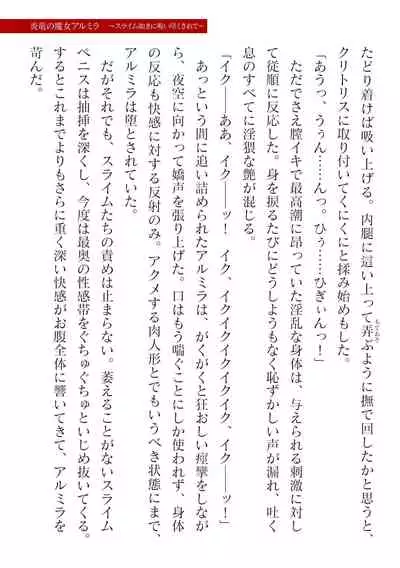 炎竜の魔女アルミラ　～スライム如きに吸い尽くされて～
たどり着けば吸い上げる。内腿に這い上って弄ぶように撫で回したかと思うと、
クリトリスに取り付いてくにくにと揉み始めもした。
「あうっ、うぅん……んっ。ひぅ……ひぎぃんっ！」
ただでさえ膣イキで最高潮に昂っていた淫乱な身体は、与えられる刺激に対し
て従順に反応した。身を捩るたびにどうしようもなく恥ずかしい声が漏れ、吐く
息のすべてに淫猥な艶が混じる。
「イク――ああ、イク――ッ！　イク、イクイクイクイクイク、イク――ッ！」
あっという間に追い詰められたアルミラは、がくがくと狂おしい痙攣をしなが
ら、夜空に向かって嬌声を張り上げた。口はもう喘ぐことにしか使われず、身体
の反応も快感に対する反射のみ。アクメする肉人形とでもいうべき状態にまで、
アルミラは堕とされていた。
だがそれでも、スライムたちの責めは止まらない。萎えることがないスライム
ペニスは抽挿を深くし、今度は最奥の性感帯をぐちゅぐちゅといじめ抜いてくる。
するとこれまでよりもさらに重く深い快感がお腹全体に響いてきて、アルミラを
苛んだ。